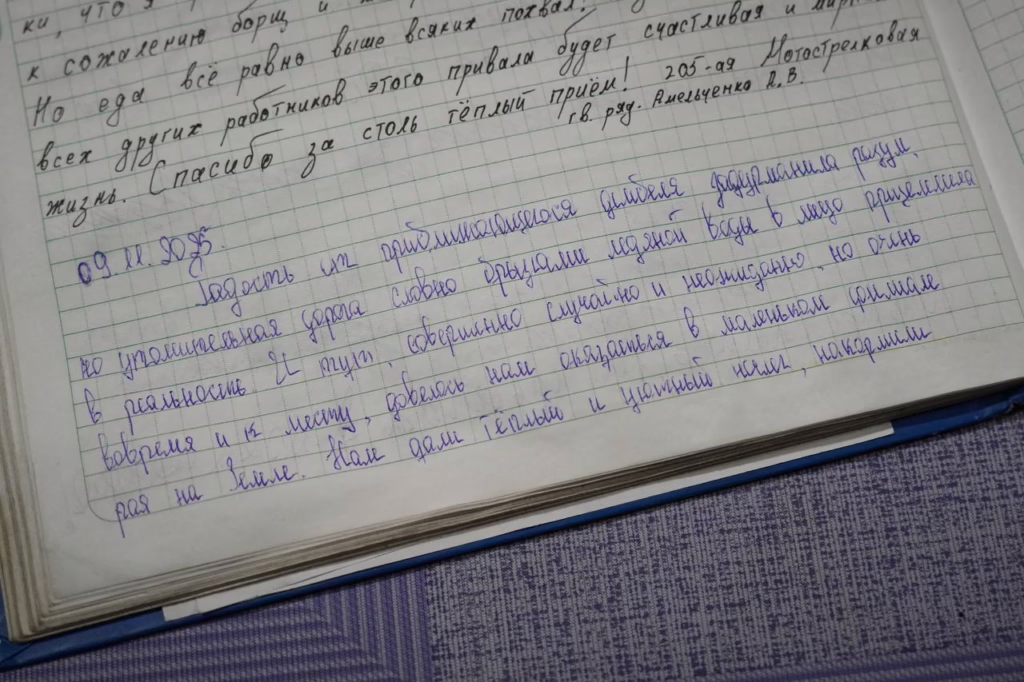 ки, что я
к сожалению борщ и
Но еда всё равно выше всяких похвал.
всех других работников этого привала будет счастливая и
жизнь. Спасибо за столь тёплый приём! 205-ая Мотострелковая
гв. ряд. Амельченко А.В.
09.11.2025.
Радость их приближающегося дембеля дурманила разум,
но утомительная дорога словно брызгами ледяной воды в лицо
в реальность И тут, совершенно случайно и неожиданно, но очень
вовремя и к месту, довелось нам оказаться в маленьком филиале
рая на Земле. Нам дали тёплый и уютный ночлег, накормили